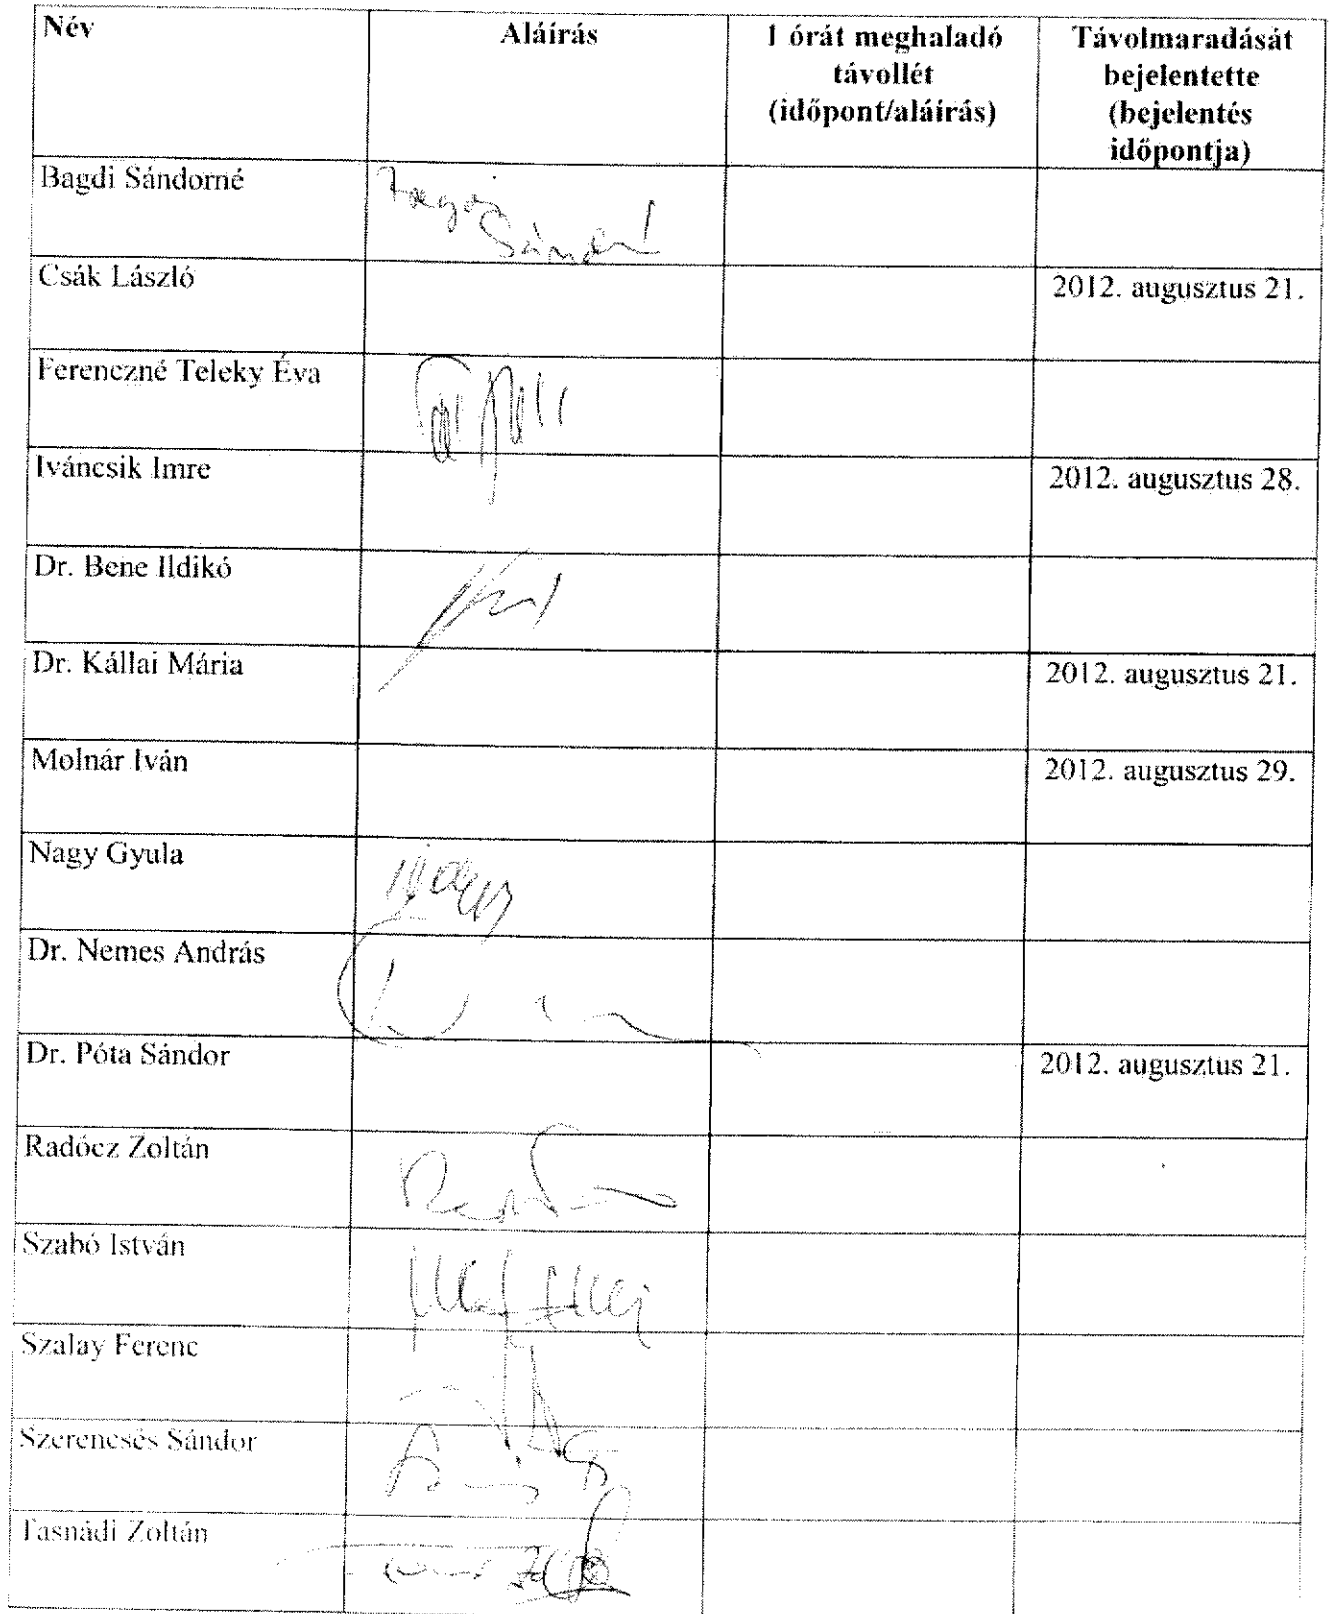 Név
Aláírás
1 órát meghaladó
távollét
(időpont/aláírás)
Távolmaradását
bejelentette
(bejelentés
időpontja)
Bagdi Sándorné
Csák László
2012. augusztus 21.
Ferenczné Teleky Éva
Iváncsik Imre
2012. augusztus 28.
Dr. Bene Ildikó
Dr. Kállai Mária
2012. augusztus 21.
Molnár Iván
2012. augusztus 29.
Nagy Gyula
Dr. Nemes András
Dr. Póta Sándor
2012. augusztus 21.
Radócz Zoltán
Szabó István
Szalay Ferenc
Szerencsés Sándor
Tasnádi Zoltán